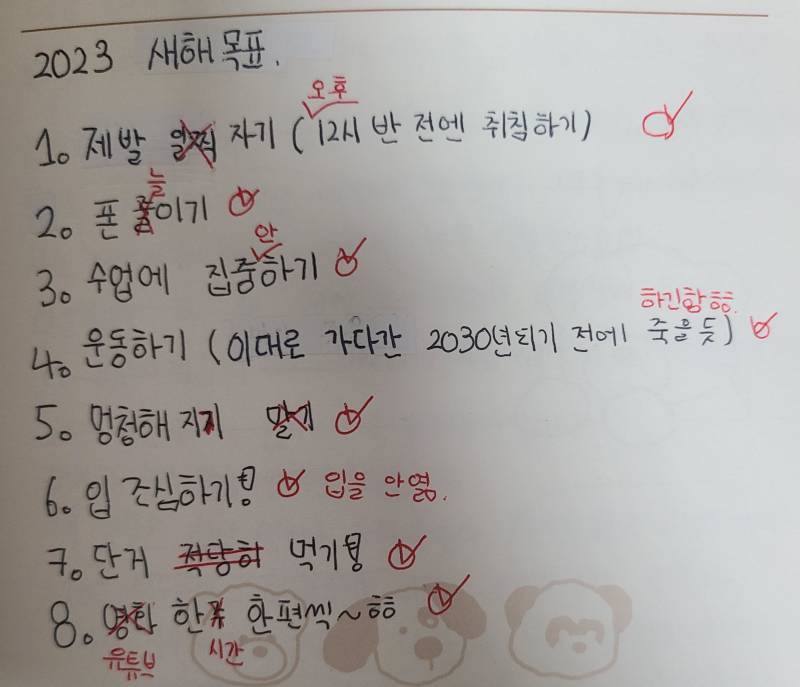 2023 새해 목표.
오후
1. 제발 일찍 자기 (12시 반 전엔 취침하기)
늘
2. 폰 줄이기
안
3. 수업에 집중하기
하긴함 ㅎㅎ.
4. 운동하기 (이대로 가다간 2030년되기 전에 죽을 듯)
5. 멍청해 지기 말기
6. 입 조심하기! 입을 안엶.
7. 단거 적당히 먹기!
8. 영화 한 한편씩~ㅎㅎ
유튜브 시간